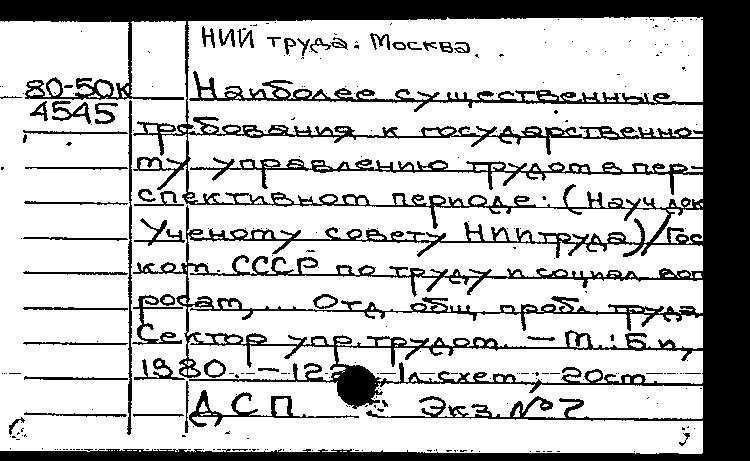 НИИ труда. Москва.
80-50к Наиболее существенные
4545 требования к государственно-
му управлению трудом в пер-
спективном периоде: (Науч док
Ученому совету НИИтруда)/Гос
ком. СССР по труду и социал воп
росам, ... Отд. общ. пробл. труда
Сектор упр. трудом. – М.: Б.и,
1980. – 1л.схем; 20см.
ДСП Экз. №2